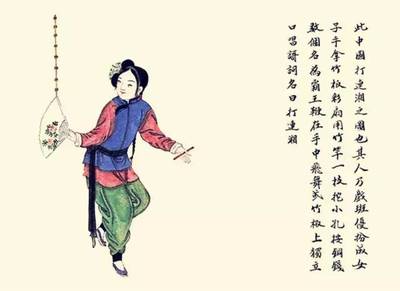 此中國打連湘之圖也其人乃戲班優扮成女
子手拿竹板彩扇用竹竿一枝挖小孔按銅錢
數個名為霸王鞭在手中飛舞或竹板上獨立
口唱諸詞名曰打連湘